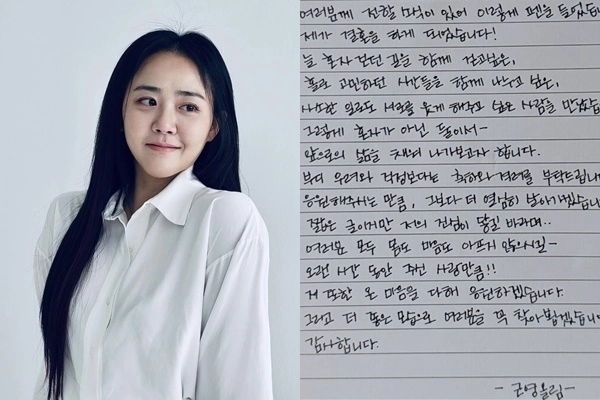 여러분께 전할 소식이 있어 이렇게 펜을 들었습
제가 결혼을 하게 되었습니다!
늘 혼자 걷던 길을 함께 걷고싶은,
홀로 고민하던 시간들을 함께 나누고 싶은,
사소한 일로도 서로를 웃게 해주고 싶은 사람을 만났습
그렇게 혼자가 아닌 둘이서~
앞으로의 삶을 채워 나가보고자 합니다.
부디 우려와 걱정보다는 축하와 격려를 부탁드립니
응원해주시는 만큼, 그보다 더 열심히 살아가겠습니
짧은 글이지만 저의 진심이 닿길 바라며..
여러분 모두 몸도 마음도 아프지 않으시길~
오랜 시간 동안 주신 사랑만큼!!
저 또한 온 마음을 다해 응원하겠습니다.
그리고 더 좋은 모습으로 여러분을 꼭 찾아뵙겠습니
감사합니다.
-근영올림-